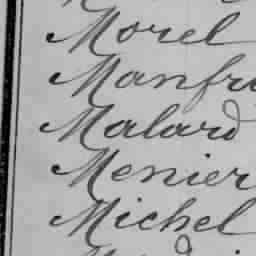 Morel
Manfr
Malard
Menier
Michel